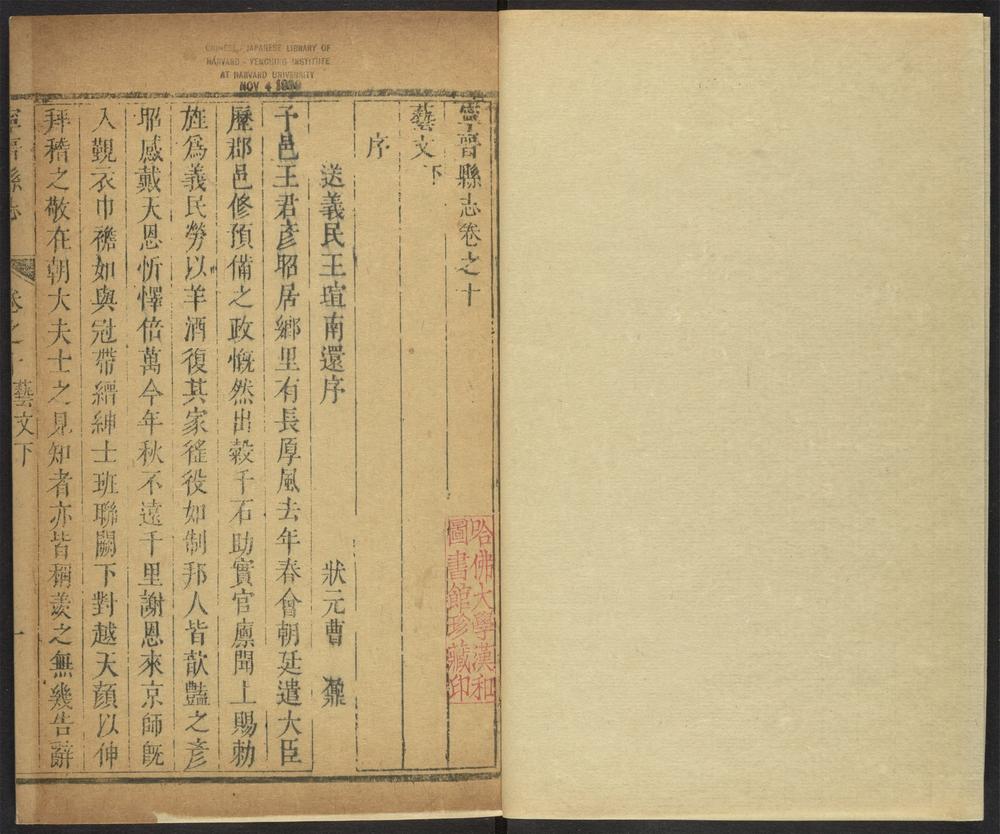 CHINESE - JAPANESE LIBRARY OF
HARVARD - YENCHING INSTITUTE
AT HARVARD UNIVERSITY
NOV 4
寧晉縣志卷之十
哈佛大學漢和
圖書館珍藏印
藝文下
序
送義民王瑄南還序 狀元曹鼐
予邑王君彥昭居鄉里有長厚風去年春會朝廷遣大臣
歷郡邑修預備之政慨然出穀千石助實官廪聞上賜勅
旌爲義民勞以羊酒復其家徭役如制邦人皆歆豔之彥
昭感戴天恩忻懌倍萬今年秋不遠千里謝恩來京師旣
入覲衣巾襜如與冠帶縉紳士班聯闕下對越天顏以伸
拜稽之敬在朝大夫士之見知者亦皆稱羨之無幾告辭
寧晉縣志 卷之十 藝文下 一